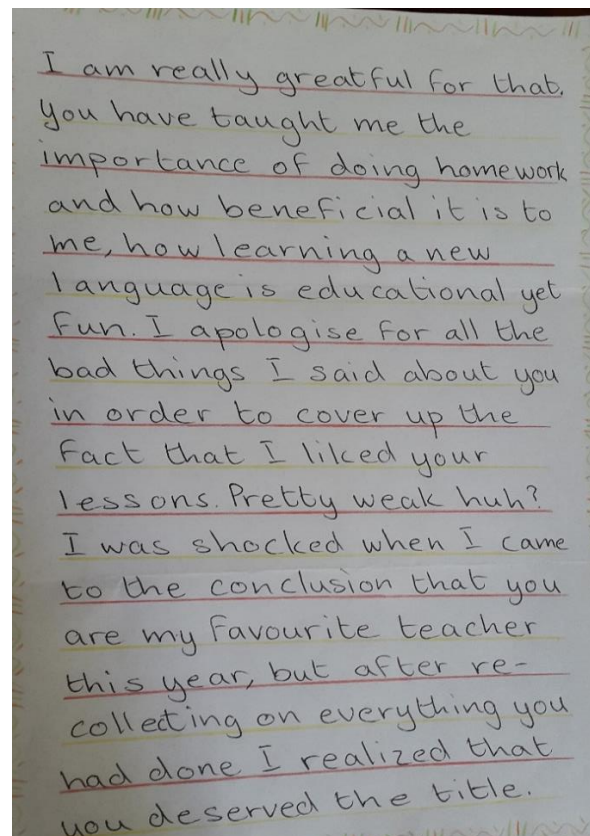 I am really greatful for that.
You have taught me the
importance of doing homework
and how beneficial it is to
me, how learning a new
language is educational yet
fun. I apologise for all the
bad things I said about you
in order to cover up the
fact that I liked your
lessons. Pretty weak huh?
I was shocked when I came
to the conclusion that you
are my favourite teacher
this year, but after re-
collecting on everything you
had done I realized that
you deserved the title.